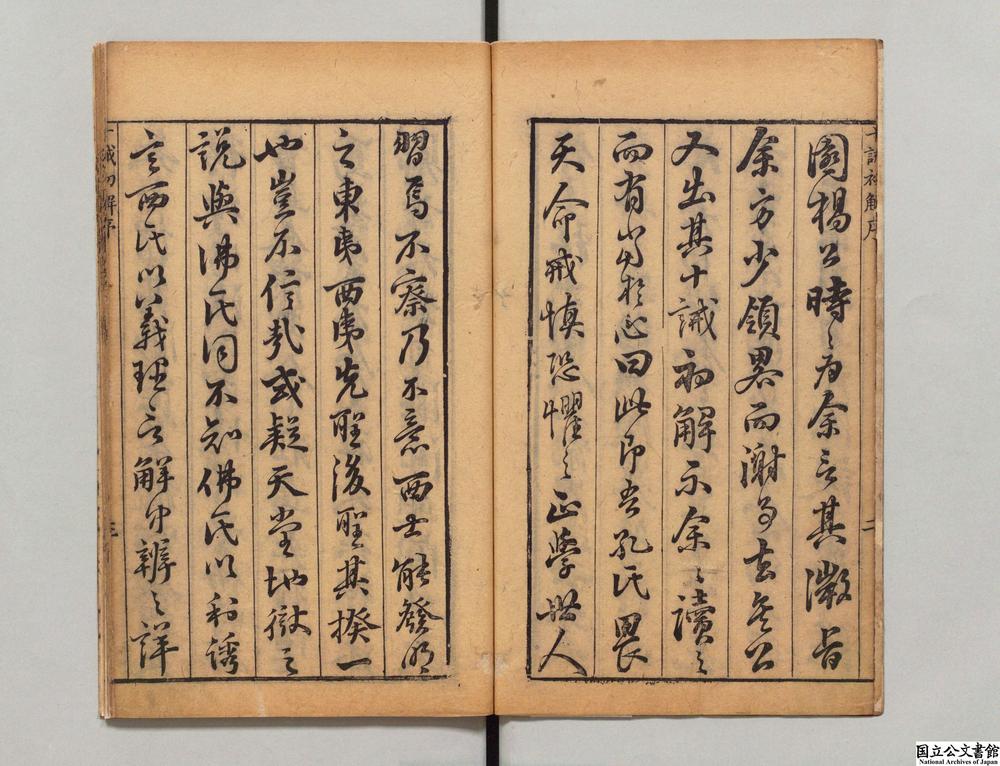 十誡初解序 二
國楊公時〻為余言其微旨
余方少領畧而謝事去矣公
又出其十誡初解示余〻讀之
而有當於心曰此即吾孔氏畏
天命戒慎恐懼之正學世人
習焉不察乃不意西士能發明
之東夷西夷先聖後聖其揆一
也豈不信哉或疑天堂地獄之
說與佛氏同不知佛氏以利誘
言西氏以義理言解中辨之詳
十誡初解序 三
国立公文書館
National Archives of Japan